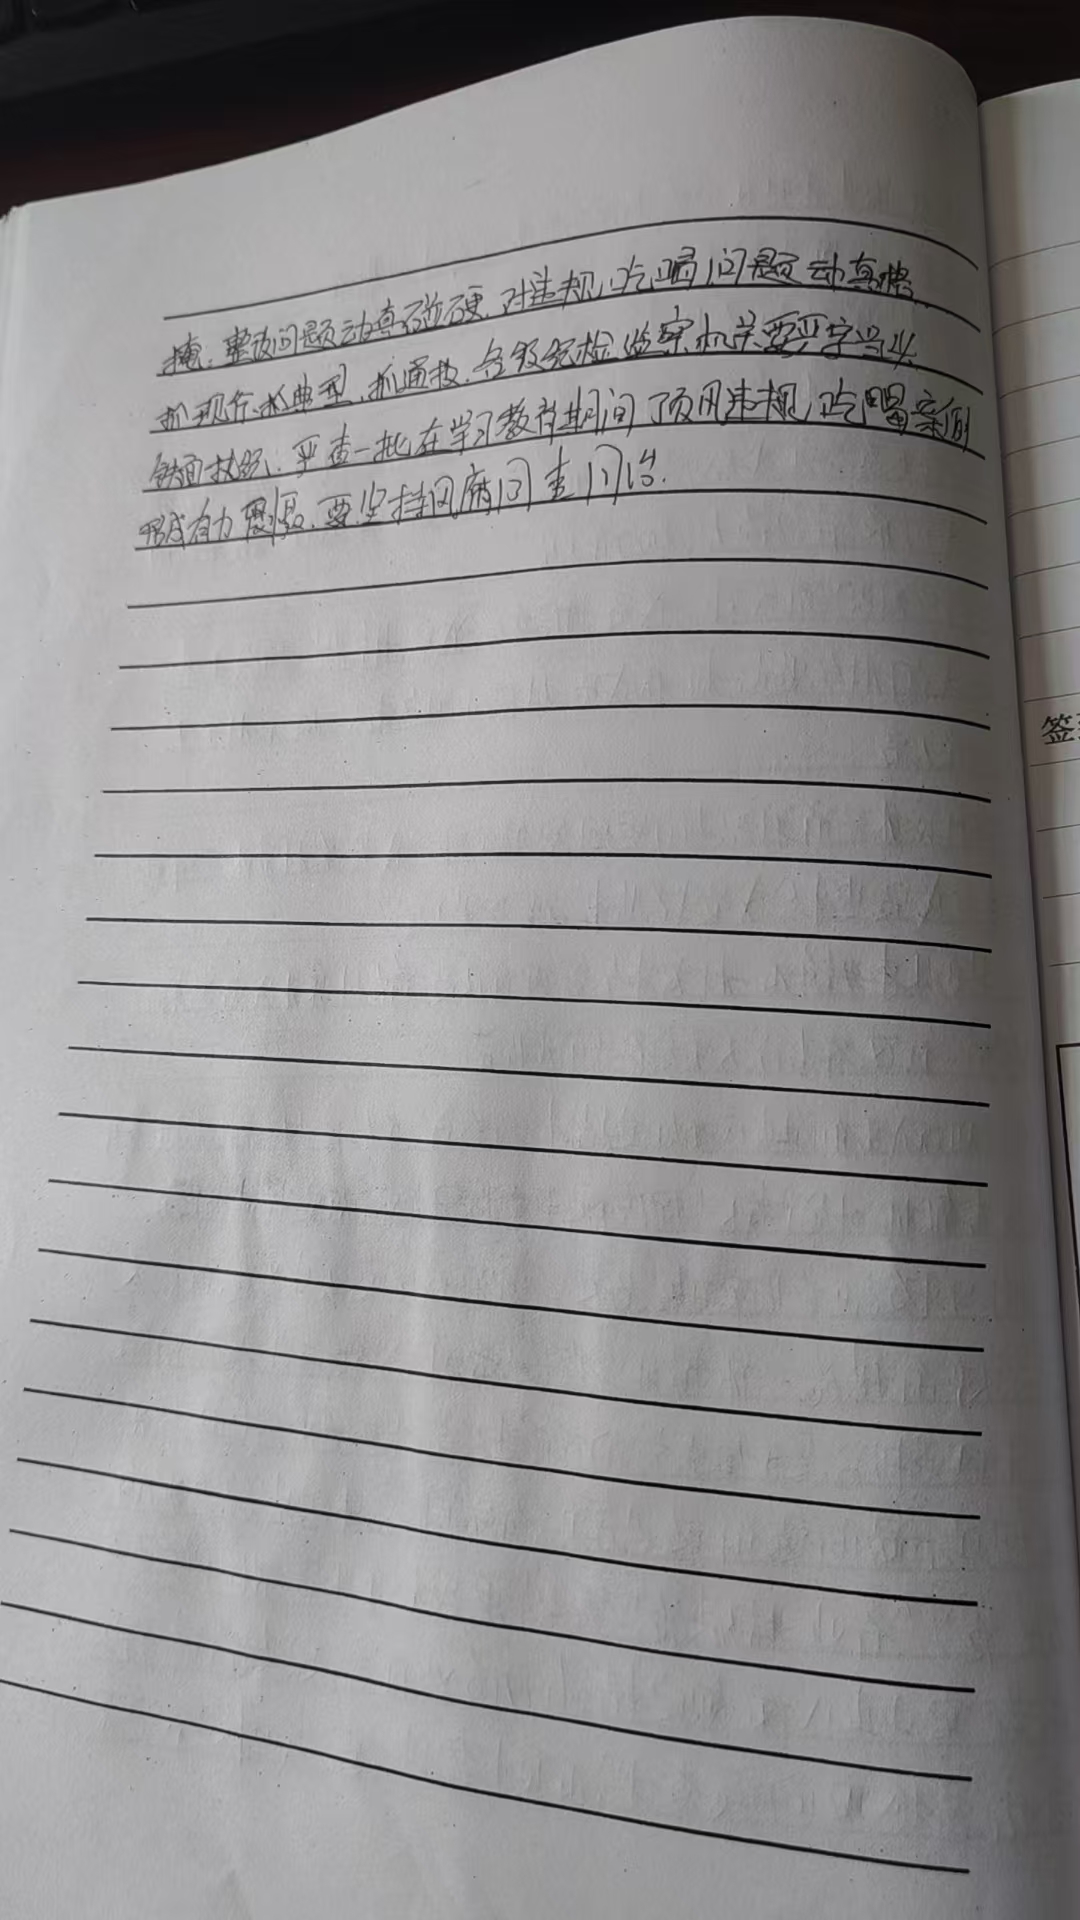 掩，整改问题动真碰硬，对违规吃喝问题动真格
抓现行、抓典型、抓通报，各级纪检监察机关要严字当头
铁面执纪，严查一批在学习教育期间顶风违规吃喝案例
形成有力震慑，要坚持风腐同查同治.
签